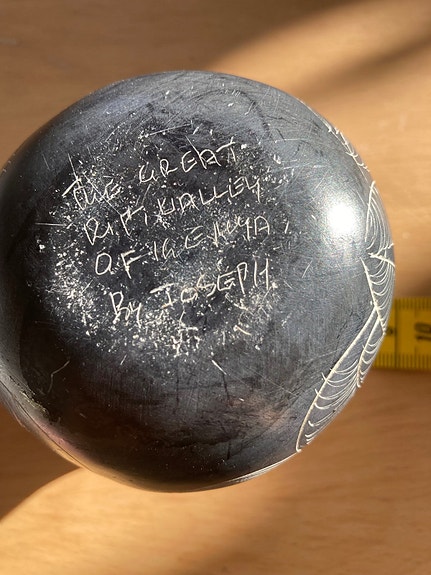 THE GREAT
RIFT VALLEY
OF KENYA
By JOSEPH.
10